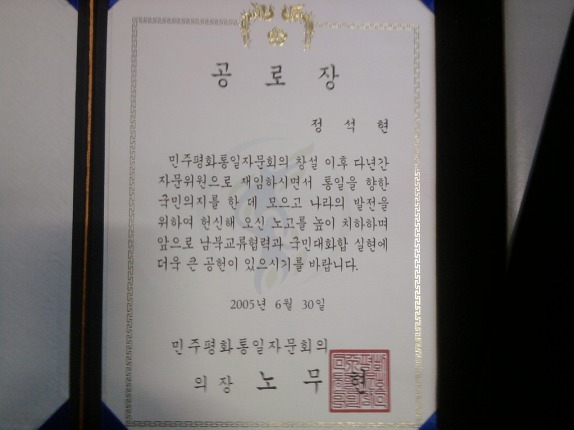 공 로 장
정 석 현
민주평화통일자문회의 창설 이후 다년간
자문위원으로 재임하시면서 통일을 향한
국민의지를 한 데 모으고 나라의 발전을
위하여 헌신해 오신 노고를 높이 치하하며
앞으로 남북교류협력과 국민대화합 실현에
더욱 큰 공헌이 있으시기를 바랍니다.
2005년 6월 30일
민주평화통일자문회의
의장 노 무 현